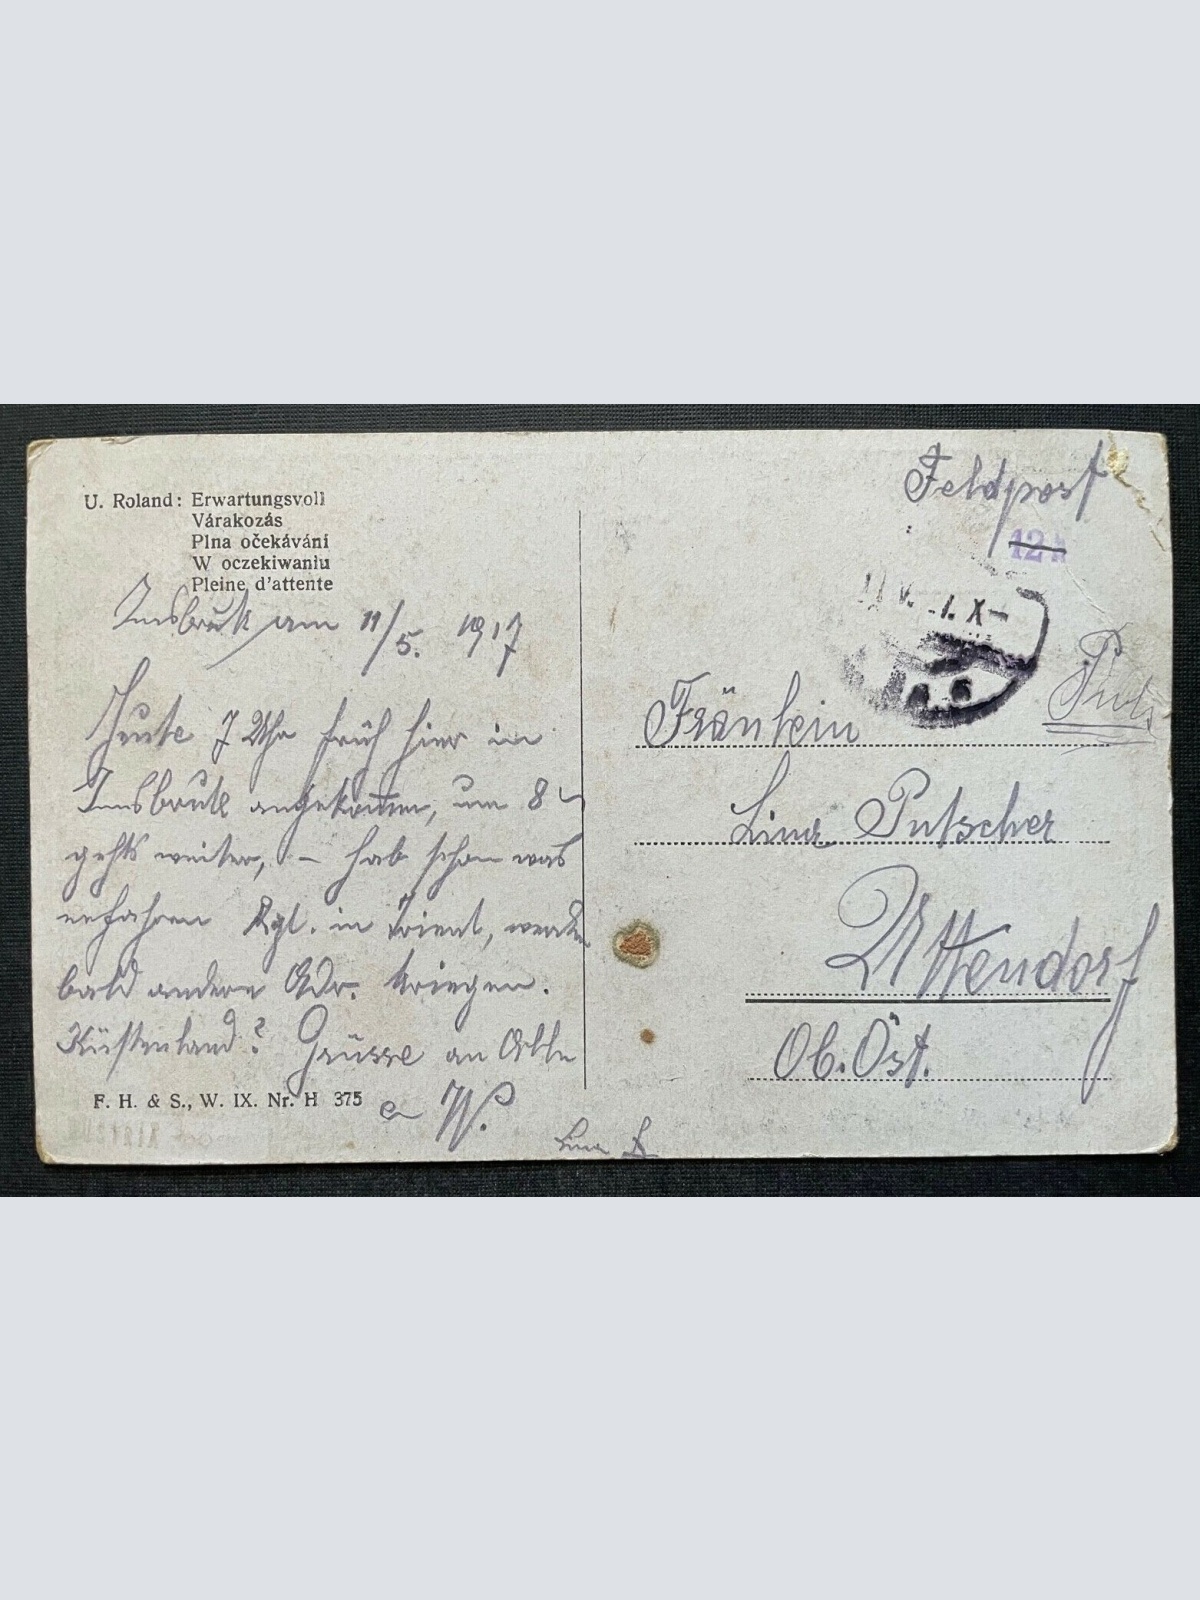 U. Roland: Erwartungsvoll
Várakozás
Plna očekáváni
W oczekiwaniu
Pleine d'attente
Innsbruk am 11/5. 1917
Heute 7 Uhr früh hier in
Innsbruck angekommen, um 8
gehts weiter, – hab schon was
erfahren Rgt. in Trient, werde
bald andere Adr. kriegen.
Küstenland? Grüsse an Alle
F. H. & S., W. IX. Nr. H 375
W.
Lina
Feldpost
12
Fräulein
Lina Putscher
Uttendorf
Ob. Öst.